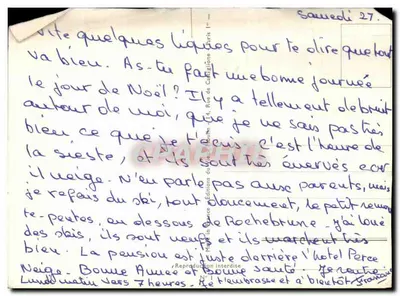 Samedi 27.
Vite quelques lignes pour te dire que tout
va bien. As-tu fait une bonne journée
le jour de Noël? Il y a tellement de bruit
autour de moi, que je ne sais pas très
bien ce que je t'écris, c'est l'heure de
la sieste, et ils sont très énervés car
il neige. N'en parle pas aux parents, mais
je refais du ski, tout doucement, le petit remon-
te-pentes, au dessous de Rochebrune. J'ai loué
des skis, ils sont neufs et ils marchent très
bien. La pension est juste derrière l'hotel Perce
Neige. Bonne Année et bonne santé. Je rentre
Lundi matin vers 7 heures. Je t'embrasse et à bientôt
Reproduction interdite